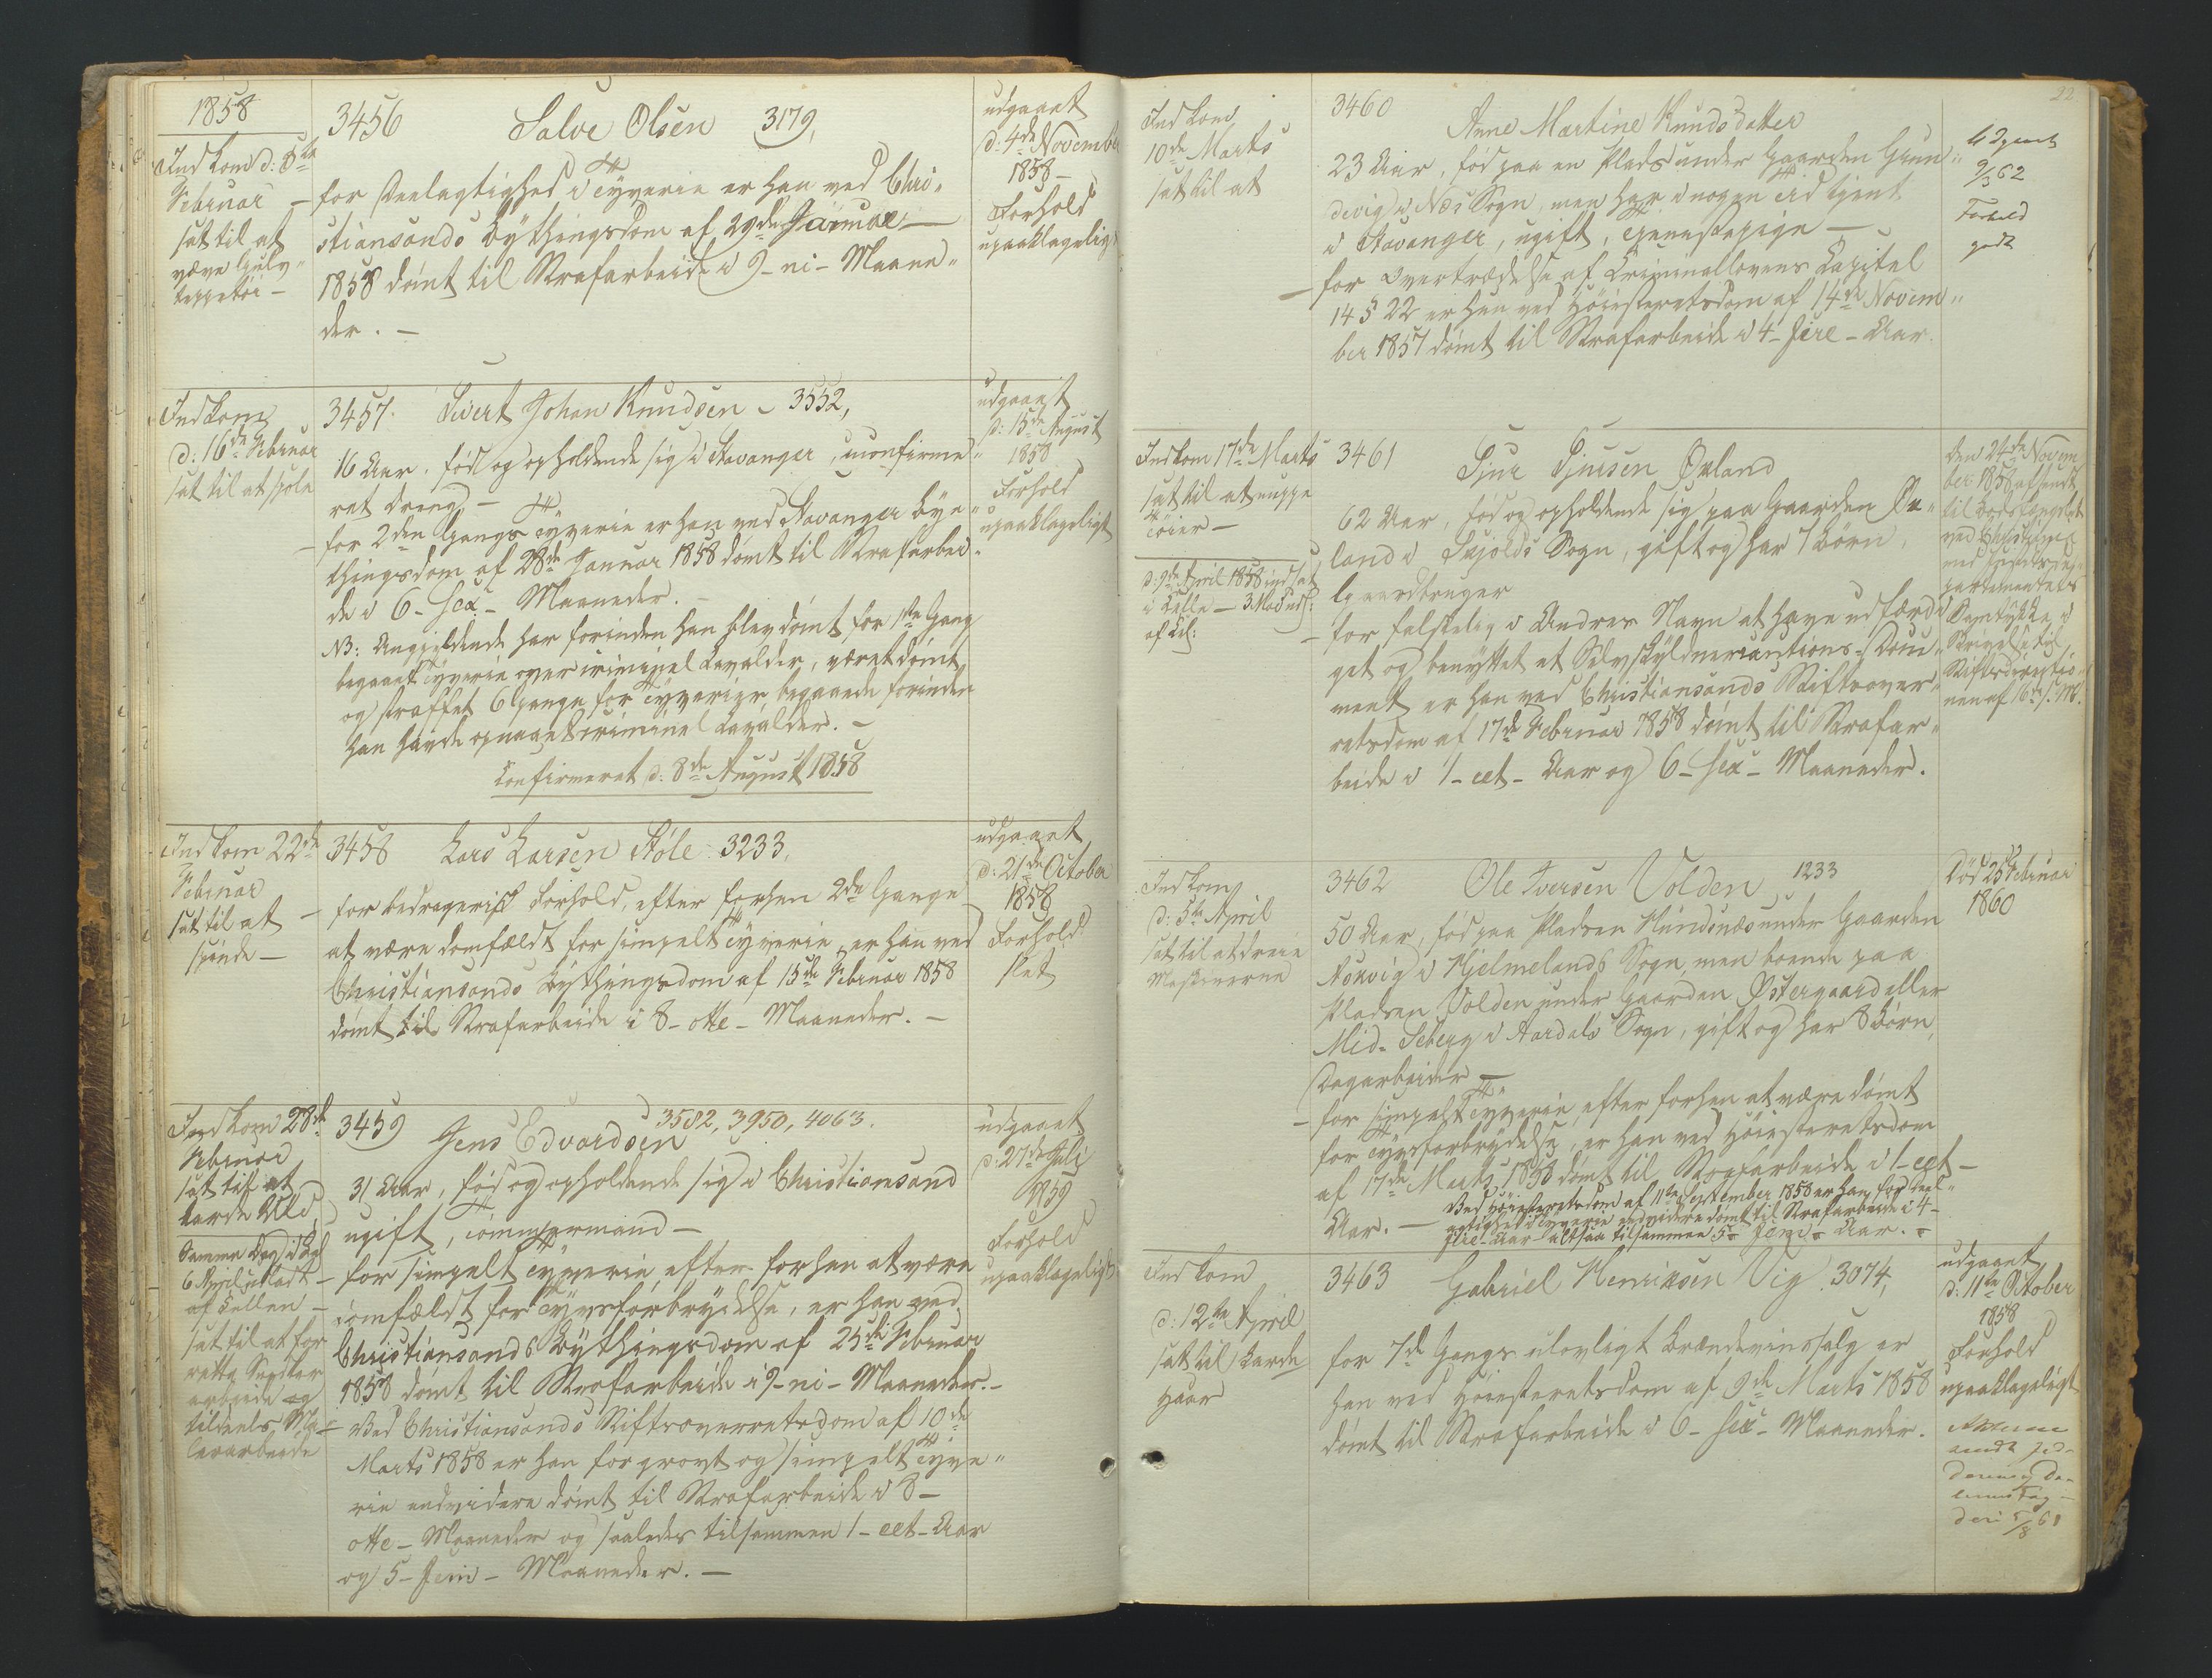 1858
Indkom d: 8de
Februar
sat til at
væve Gulv-
teppetøi -
3456 Salve Olsen 3179,
for Deelagtighed i Tyverie er han ved Chri-
stiansands Bythingsdom af 29de Januar
1858 dømt til Strafarbeide i 9 - ni - Maane-
der. -
udgaaet
d: 4de November
1858 -
Forhold
upaaklageligt
Indkom
d: 16de Februar
sat til at spole
3457. Sivert Johan Knudsen - 3552,
16 Aar, fød og opholdende sig i Stavanger, uconfirme-
ret dreng, -
for 2den Gangs Tyverie er han ved Stavanger Bye-
thingsdom af 28de Januar 1858 dømt til Strafarbei-
de i 6 - sex - Maaneder. -
NB: Angjeldende har forinden han blev dømt for 1ste Gang
begaaet Tyverie over criminel Lavalder, været dømt
og straffet 6 gange for Tyverier begaaede forinden
han havde opnaaet criminel Lavalder. -
Confirmeret d: 8de August 1858
udgaaet
d: 15de August
1858
Forhold
upaaklageligt
Indkom 22de
Februar
sat til at
spinde -
3458 Lars Larsen Støle 3233,
for bedragerisk Forhold, efter forhen 2de Gange
at være domfældt for simpelt Tyverie, er han ved
Christiansands Bythingsdom af 15de Februar 1858
dømt til Strafarbeide i 8 - otte - Maaneder. -
udgaaet
d: 21de October
1858
Forhold
slet
Indkom 28de
Februar
sat til at
karde Uld
Samme Dag i
6 April
af Cellen -
sat til at for
rette Snedker
arbeide og
tildeels Ma-
lerarbeide
3459 Jens Edvardsen 3582, 3950, 4063.
31 Aar, fød og opholdende sig i Christiansand
ugift, Tømmermand -
for simpelt Tyverie efter forhen at være
domfældt for Tyvsforbrydelse, er han ved
Christiansands Bythingsdom af 25de Februar
1858 dømt til Strafarbeide i 9 - ni - Maaneder. -
- Ved Christiansands Stiftsoverretsdom af 10de
Marts 1858 er han for grovt og simpelt Tyve-
rie endvidere dømt til Strafarbeide i 8 -
otte - Maaneder og saaledes tilsammen 1 - eet - Aar
og 5 - fem - Maaneder. -
udgaaet
d: 27de Juli
1859
Forhold
upaaklageligt
22
Indkom
10de Marts
sat til at
3460
Anne Martine Knudsdatter
23 Aar, fød paa en Plads under Gaarden Grun-
devig i Næs Sogn, men har i nogen Tid tjent
i Stavanger, ugift, Tjenestepige -
for Overtrædelse af Criminallovens Kapitel
14 § 22 er hun ved Høiesteretsdom af 14de Novem-
ber 1857 dømt til Strafarbeide i 4 - fire - Aar.
Udgaaet
9/3 62
Forhold
godt
Indkom 17de Marts
sat til at nuppe
Tøier -
d: 9de April 1858 indsat
i Celle -
3461
Sjur Sjursen Øxland
62 Aar, fød og opholdende sig paa Gaarden Øx-
land i Skjolds Sogn, gift og har 7 Børn,
Gaardbruger
- for falskelig i Andres Navn at have udfærdi-
get og benyttet et Selvskyldnercautions-Docu-
ment er han ved Christiansands Stiftsover-
retsdom af 17de Februar 1858 dømt til Strafar-
beide i 1 - eet - Aar og 6 - sex - Maaneder.
den 24de Novem-
ber 1858 afsendt
til Bodsfængslet
ved Christiania
med Justitsde-
partementets
Samtykke i
Skrivelse til
Stiftsdirectio-
nen af 16de s. M.
Indkom
d: 5te April
sat til at dreie
Maskinerne
3462 Ole Iversen Volden 1233
50 Aar, fød paa Pladsen Hundsnæs under Gaarden
Askvig i Hjelmelands Sogn, men boende paa
Pladsen Volden under Gaarden Østergaard eller
Mid-Seberg i Aardals Sogn, gift og har 8 Børn,
Dagarbeider -
- for simpelt Tyverie, efter forhen at være dømt
for Tyvsforbrydelse, er han ved Høiesteretsdom
af 17de Marts 1858 dømt til Strafarbeide i 1 - eet -
Aar. - Ved Høiesteretsdom af 11te September 1858 er han for Deel-
agtighed i Tyverie endvidere dømt til Strafarbeide i 4 -
fire - Aar altsaa tilsammen 5 - fem - Aar. -
Død 25de Februar
1860
Indkom
d: 12te April
sat til karde
Haar
3463 Gabriel Henriksen Vig 3074,
for 7de Gangs ulovligt Brændeviinssalg er
han ved Høiesteretsdom af 9de Marts 1858
dømt til Strafarbeide i 6 - sex - Maaneder.
udgaaet
d: 11te October
1858
Forhold
upaaklageligt